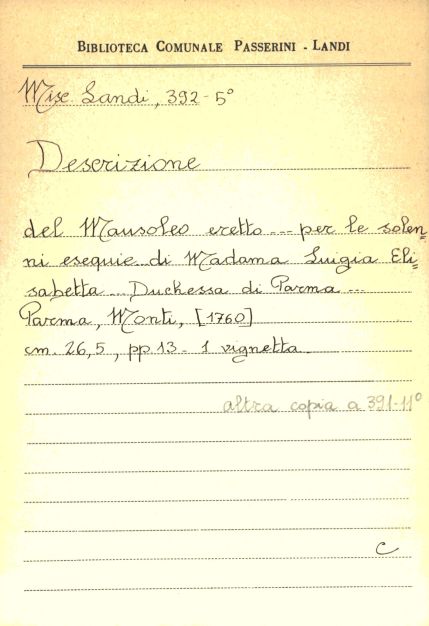 BIBLIOTECA COMUNALE PASSERINI - LANDI
Misc. Landi, 392-5°
Descrizione
del Mausoleo eretto --- per le solen=
ni esequie di Madama Luigia Eli=
sabetta --- Duchessa di Parma ---
Parma, Monti, [1760]
cm. 26,5, pp 13 - 1 vignetta.
altra copia a 391-11°
C